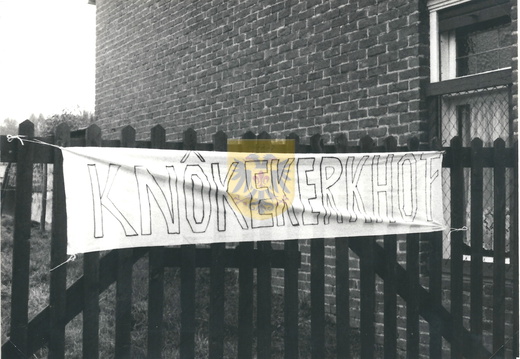 KNÔKEKERKHOF